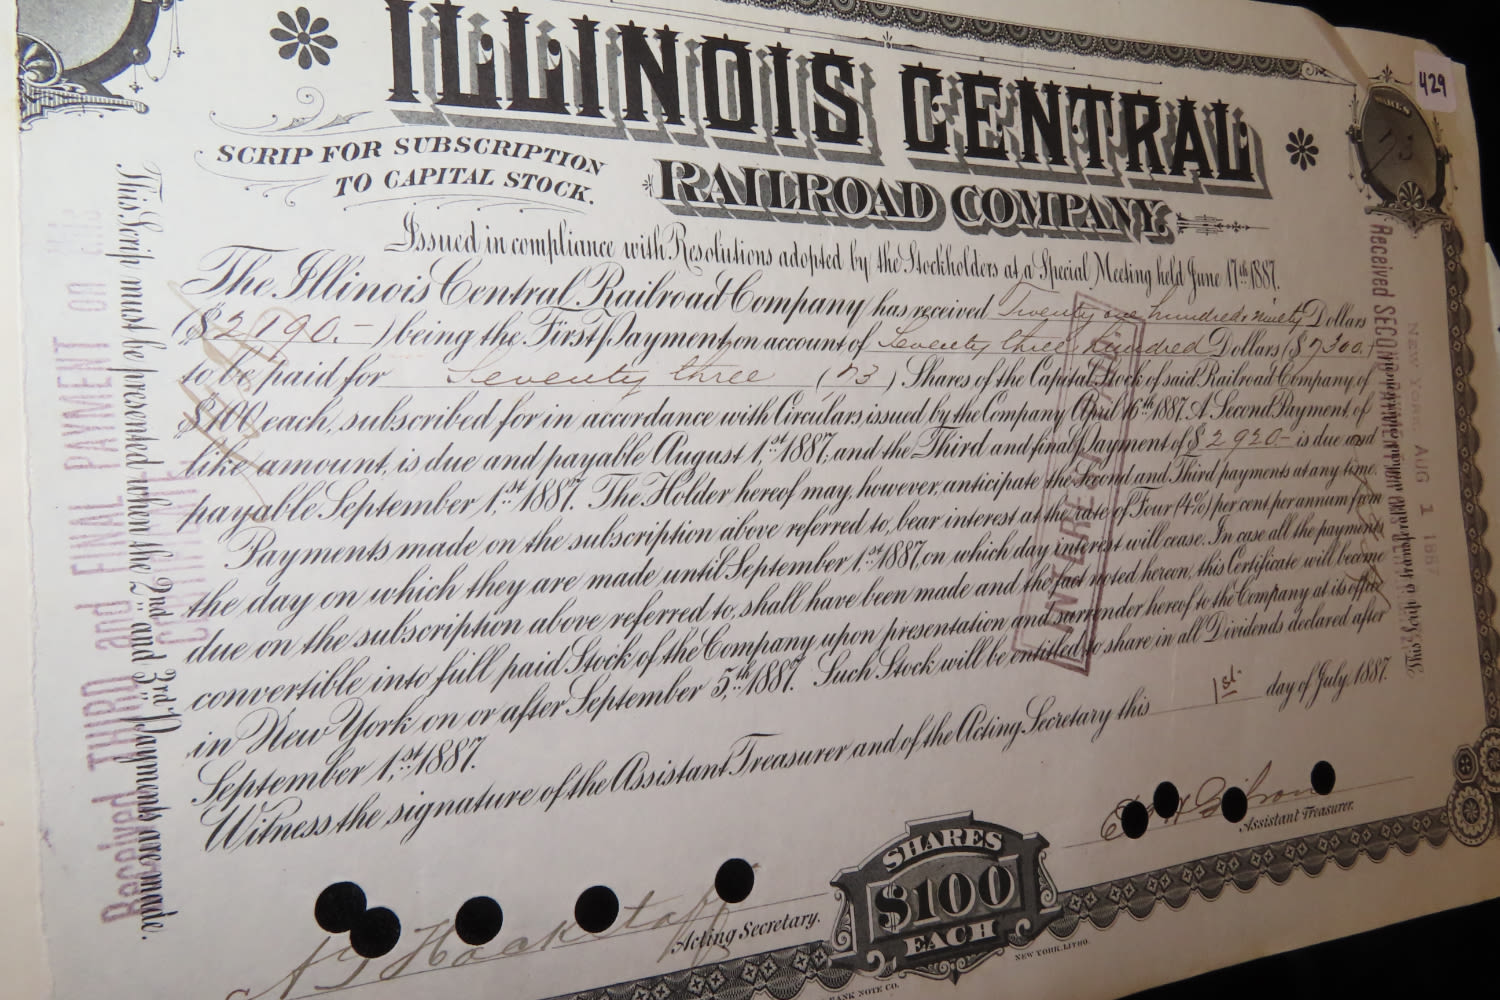 429
ILLINOIS CENTRAL
RAILROAD COMPANY.
SCRIP FOR SUBSCRIPTION
TO CAPITAL STOCK.
SHARES
73
Issued in compliance with Resolutions adopted by the Stockholders at a Special Meeting held June 17th 1887.
The Illinois Central Railroad Company has received Twenty one hundred & ninety Dollars
($2190.-) being the First Payment on account of Seventy three hundred Dollars ($7300.-)
to be paid for Seventy three (73) Shares of the Capital Stock of said Railroad Company of
$100 each, subscribed for in accordance with Circulars issued by the Company April 16th 1887. A Second Payment of
like amount, is due and payable August 1st 1887, and the Third and final Payment of $2920- is due and
payable September 1st 1887. The Holder hereof may, however, anticipate the Second and Third payments at any time.
Payments made on the subscription above referred to, bear interest at the rate of Four (4%) per cent. per annum from
the day on which they are made until September 1st 1887, on which day interest will cease. In case all the payments
due on the subscription above referred to, shall have been made and the fact noted hereon, this Certificate will become
convertible into full paid Stock of the Company upon presentation and surrender hereof to the Company at its office
in New York on or after September 5th 1887. Such Stock will be entitled to share in all Dividends declared after
September 1st 1887.
Witness the signature of the Assistant Treasurer and of the Acting Secretary this 1st day of July 1887.
Assistant Treasurer.
Acting Secretary.
SHARES
$100
EACH
NEW YORK, LITHO.
BANK NOTE CO.
This Scrip must be presented when the 2nd and 3rd Payments are made.
Received THIRD and FINAL PAYMENT on
Received SECOND PAYMENT
NEW YORK AUG 1 1887
INTEREST